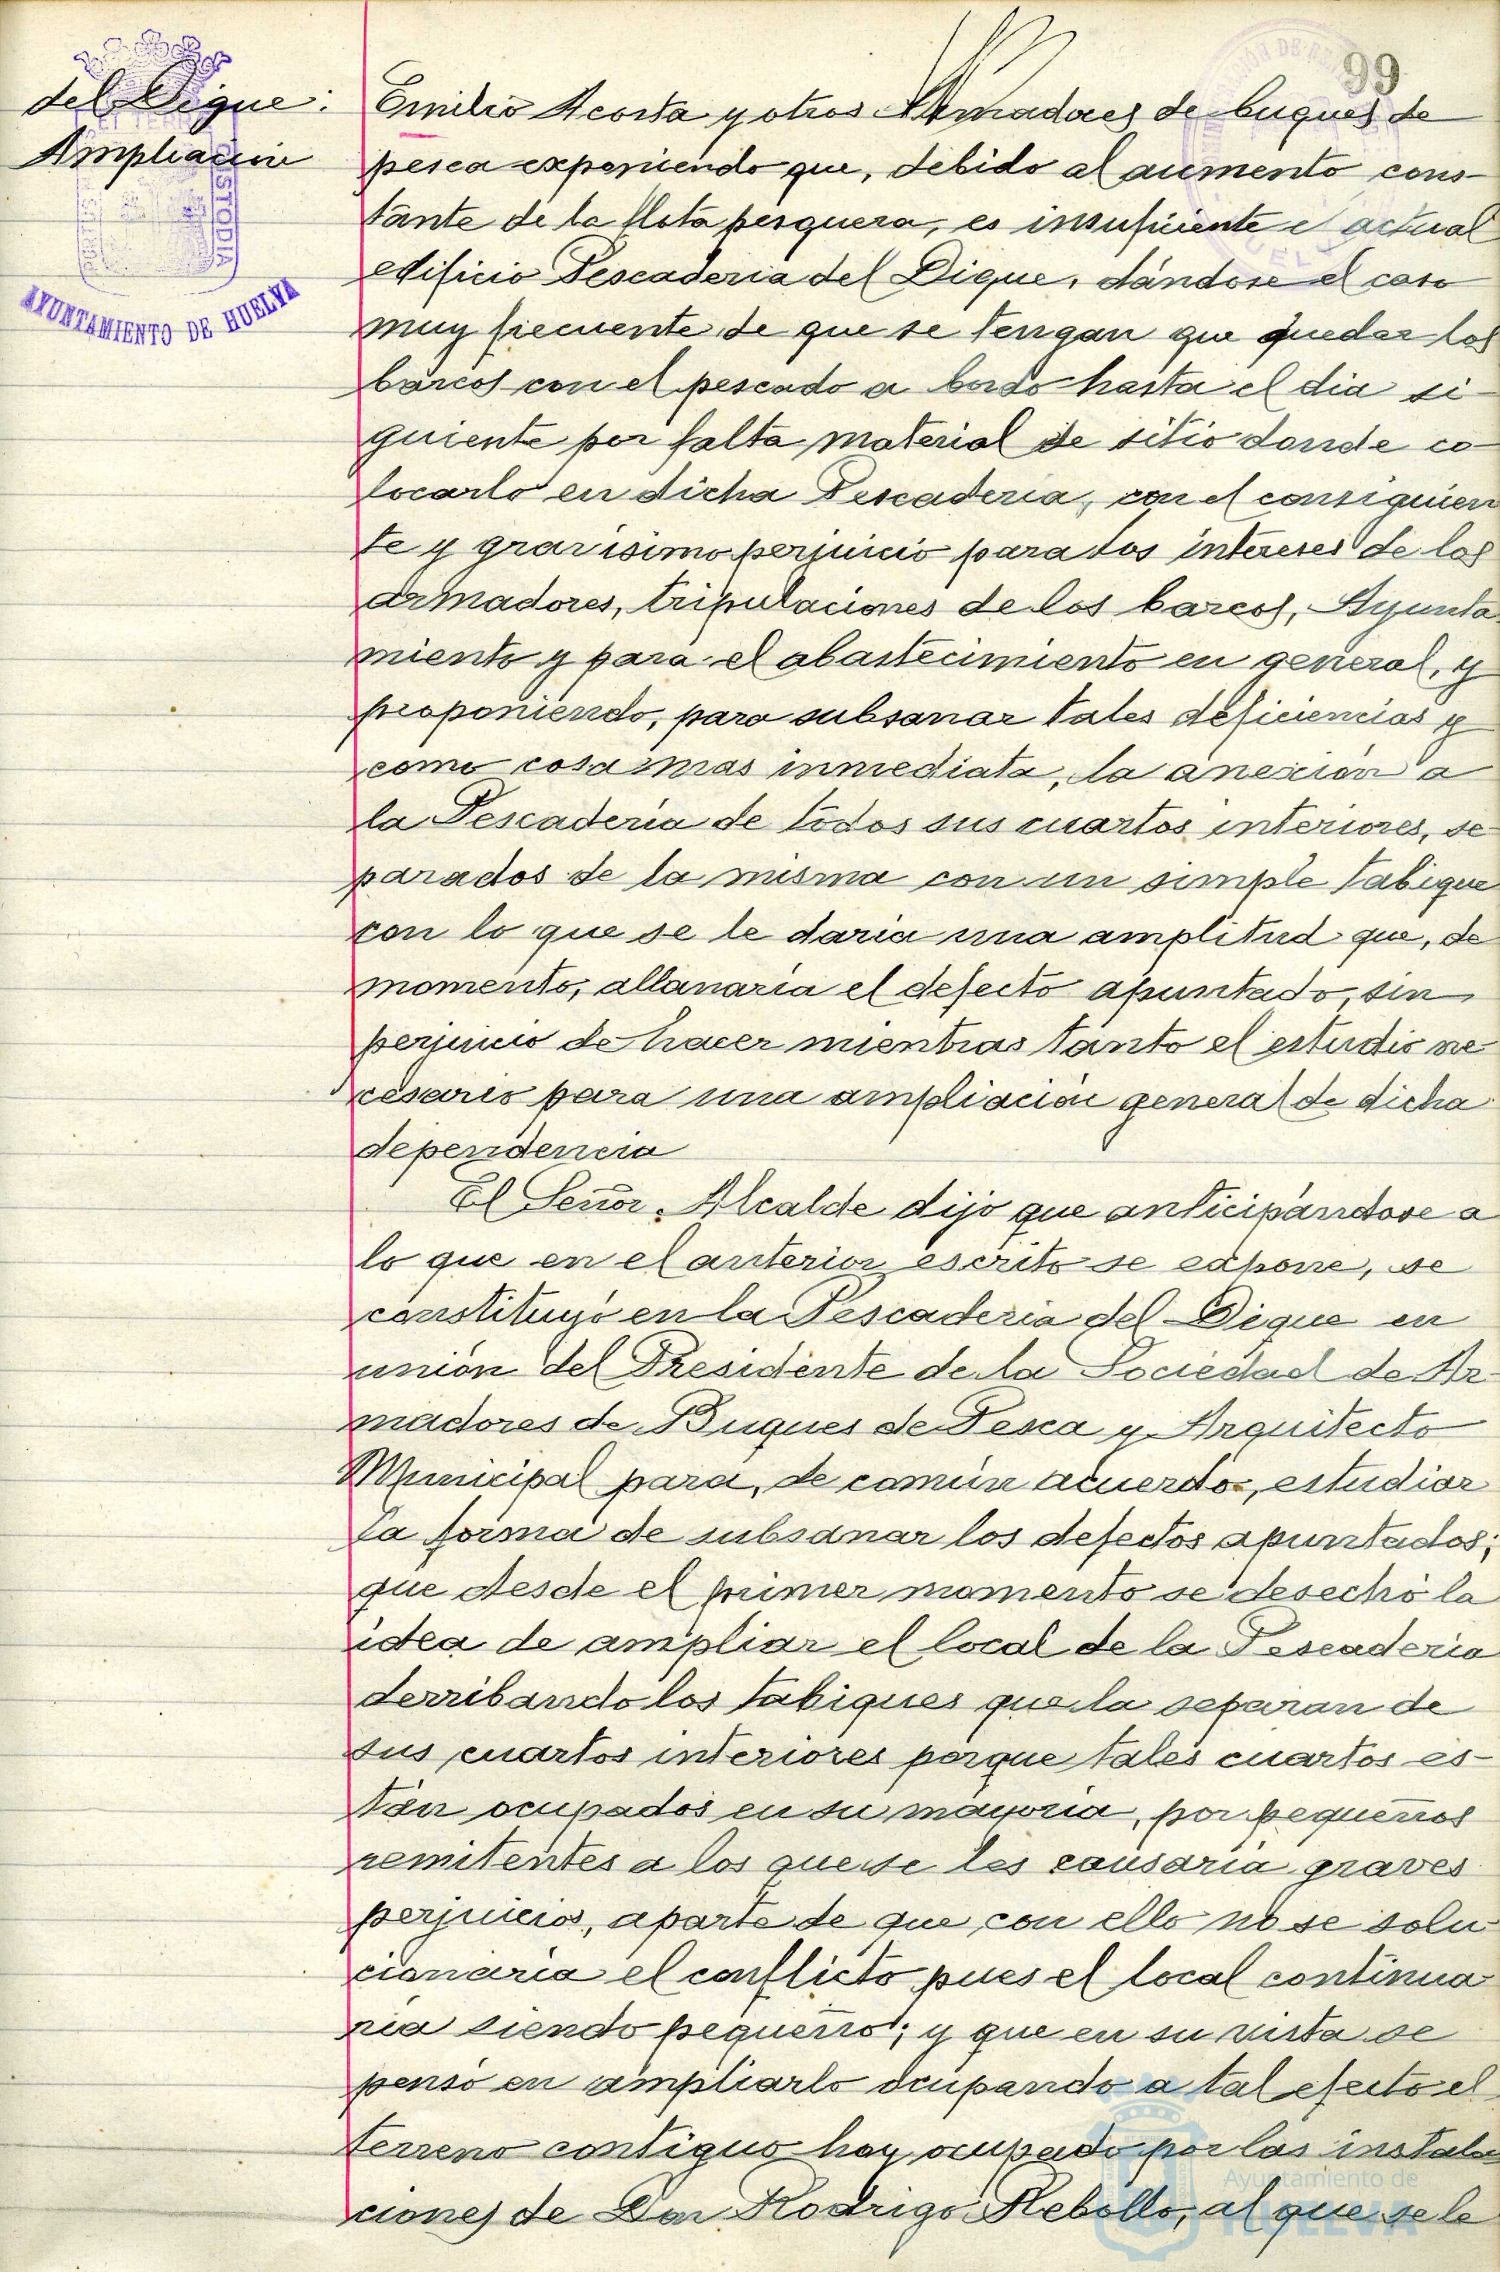 99
del Dique:
Ampliación
AYUNTAMIENTO DE HUELVA
Emilio Acosta y otros Armadores de buques de
pesca exponiendo que, debido al aumento cons-
tante de la flota pesquera, es insuficiente el actual
edificio Pescaderia del Dique, dándose el caso
muy frecuente de que se tengan que quedar los
barcos con el pescado a bordo hasta el dia si-
guiente por falta material de sitio donde co-
locarlo en dicha Pescaderia, con el consiguien
te y gravisimo perjuicio para los intereses de los
armadores, tripulaciones de los barcos, Ayunta
miento y para el abastecimiento en general, y
proponiendo, para subsanar tales deficiencias y
como cosa mas inmediata, la anexión a
la Pescaderia de todos sus cuartos interiores, se
parados de la misma con un simple tabique
con lo que se le daria una amplitud que, de
momento, allanaria el defecto apuntado, sin
perjuicio de hacer mientras tanto el estudio ne
cesario para una ampliación general de dicha
dependencia
El Señor Alcalde dijo que anticipándose a
lo que en el anterior escrito se expone, se
constituyó en la Pescaderia del Dique en
unión del Presidente de la Sociedad de Ar-
madores de Buques de Pesca y Arquitecto
Municipal para, de común acuerdo, estudiar
la forma de subsanar los defectos apuntados;
que desde el primer momento se desechó la
idea de ampliar el local de la Pescaderia
derribando los tabiques que la separan de
sus cuartos interiores porque tales cuartos es-
tán ocupados en su mayoria, por pequeños
remitentes a los que se les causaria graves
perjuicios, aparte de que con ello no se solu
cionaria el conflicto pues el local continua
ria siendo pequeño; y que en su vista se
pensó en ampliarlo ocupando a tal efecto el
terreno contiguo hoy ocupado por las instala
ciones de Don Rodrigo Rebollo, al que se le
Ayuntamiento de
HUELVA